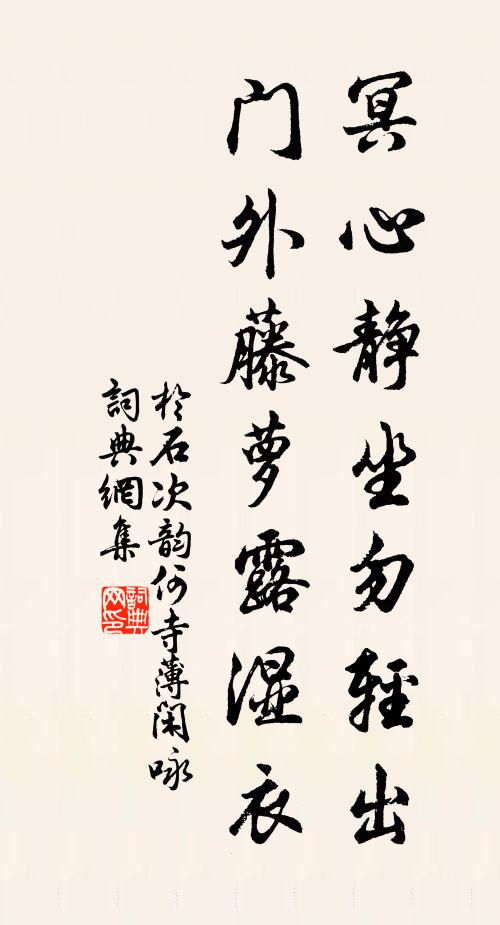 冥心静坐勿輕出
门外藤萝露湿衣
於石次韵何寺薄闲咏
詞典網集
詞典网印